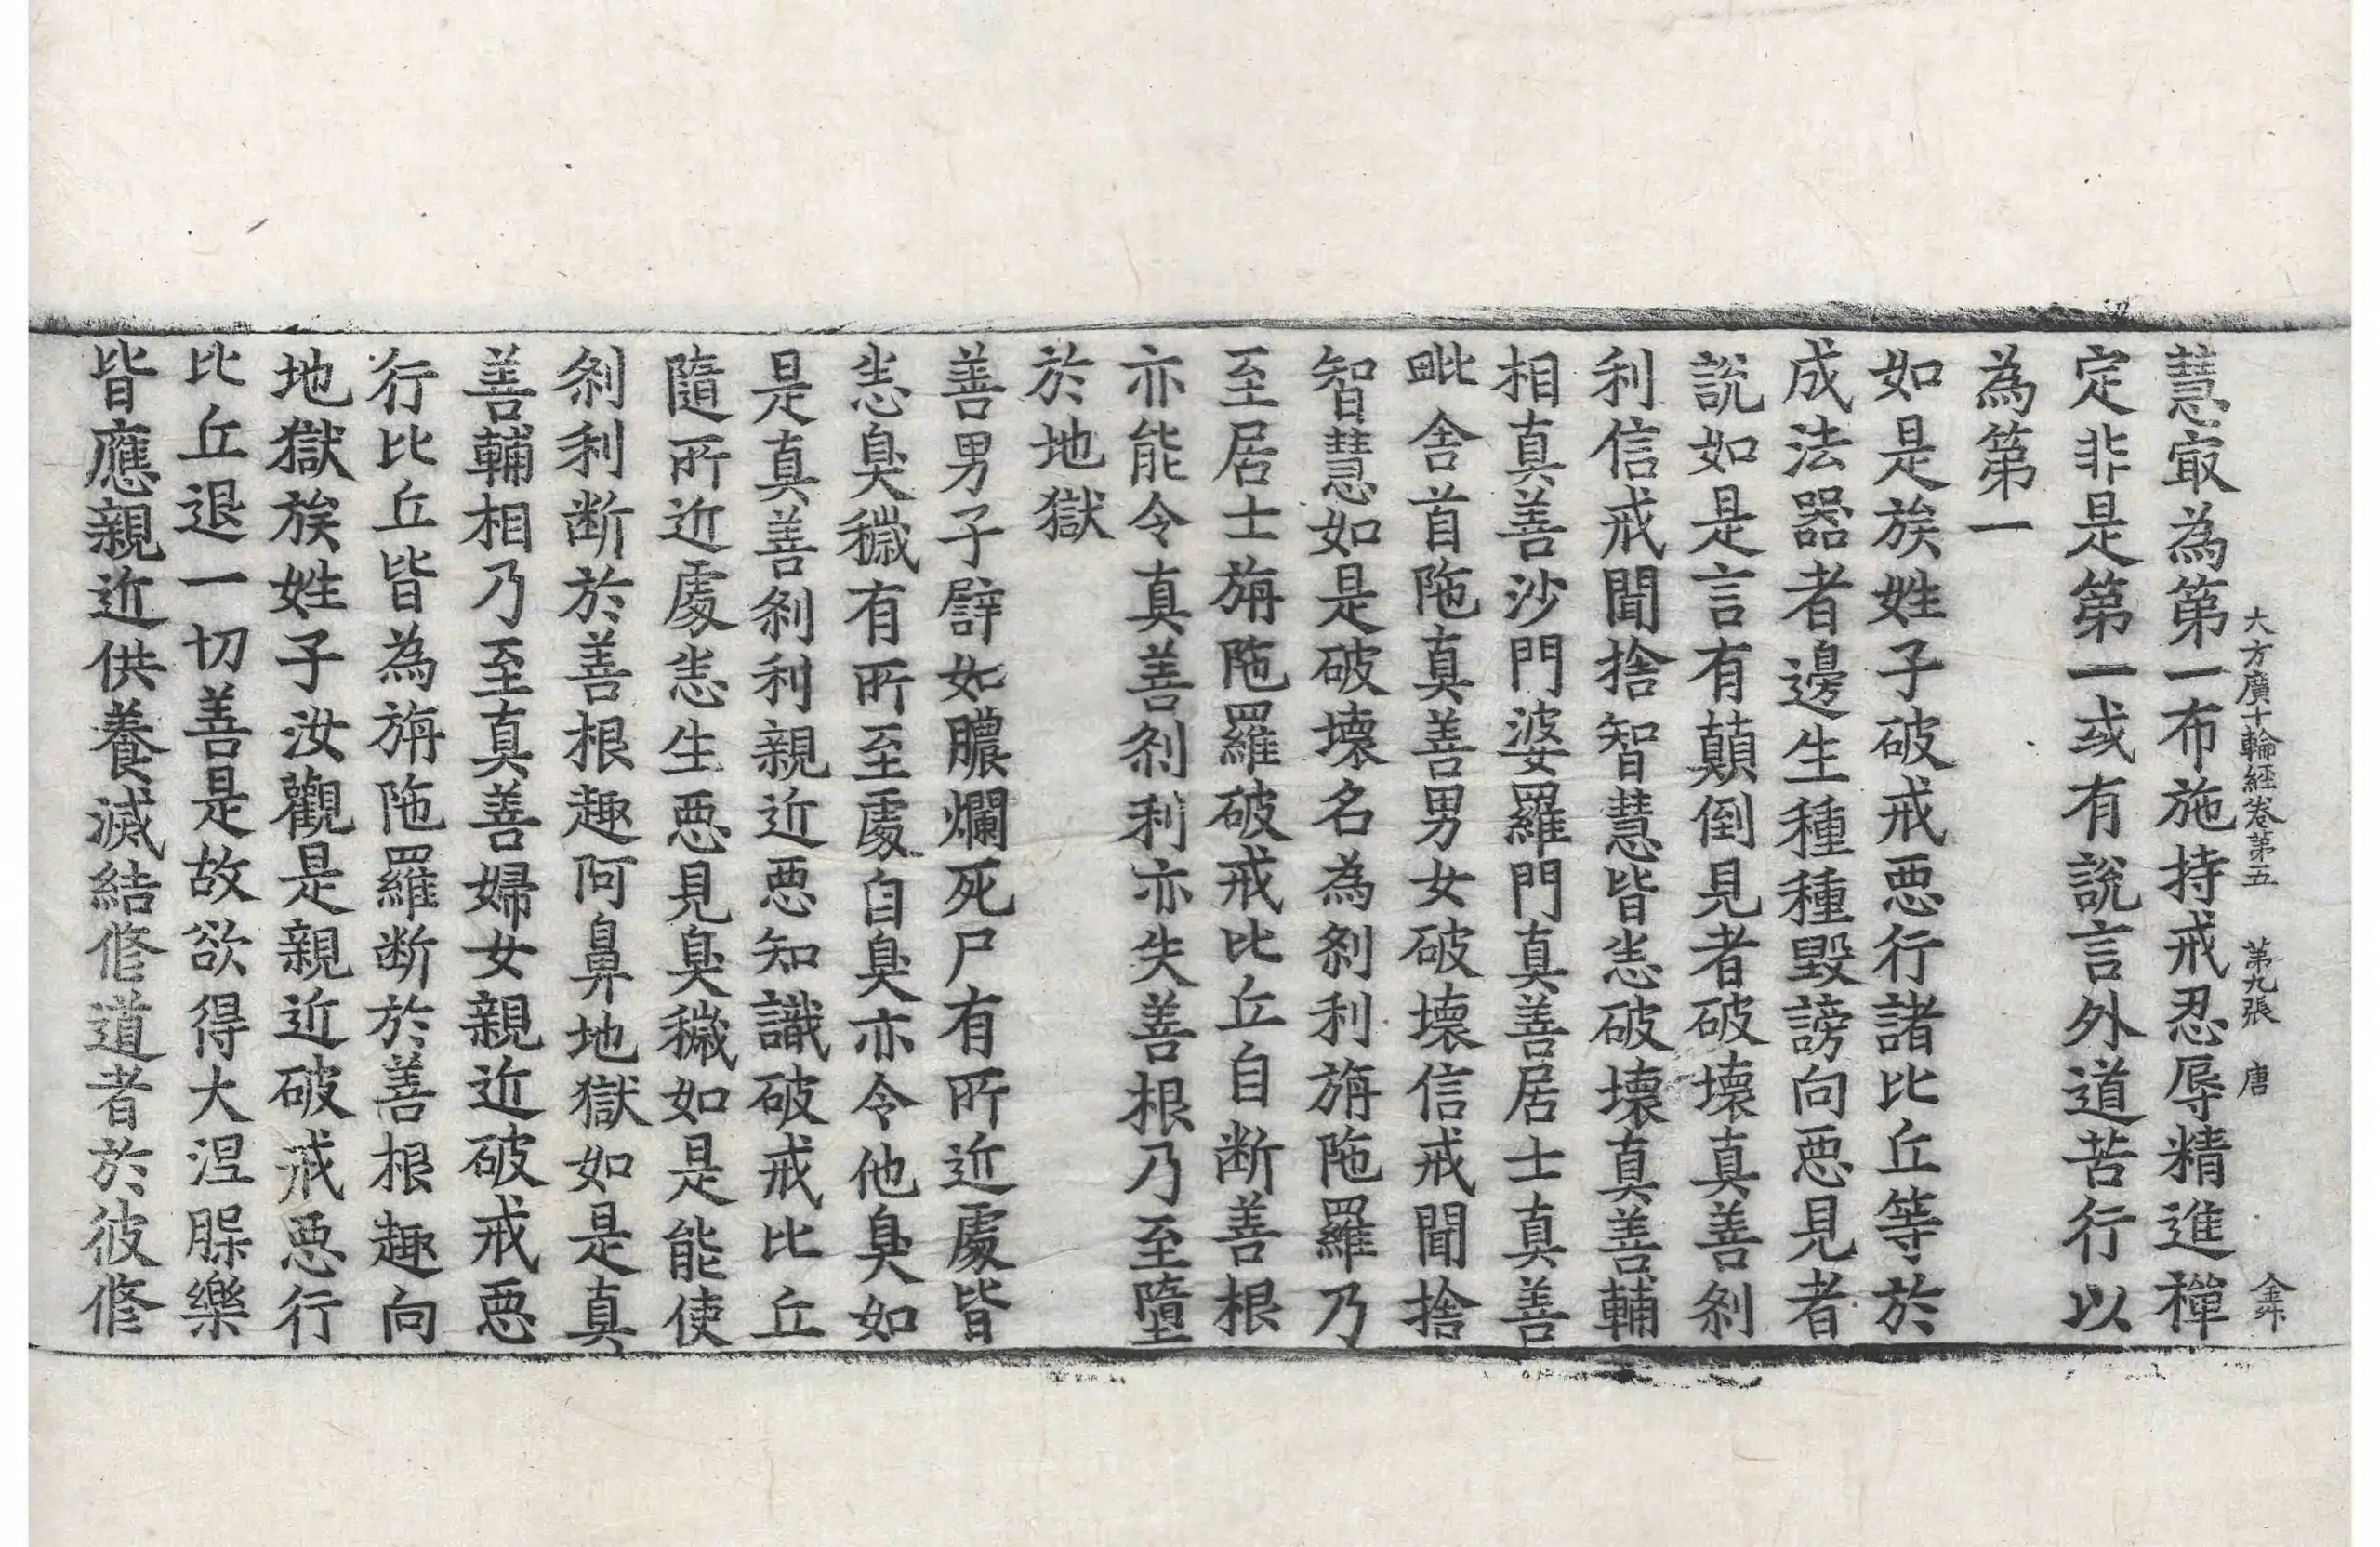 大方廣十輪經卷第五 第九張 唐 金升
慧㝡為第一布施持戒忍辱精進禪
定非是第一或有說言外道苦行以
為第一
如是族姓子破戒惡行諸比丘等於
成法器者邊生種種毀謗向惡見者
說如是言有顛倒見者破壞真善刹
利信戒聞捨智慧皆悉破壞真善輔
相真善沙門婆羅門真善居士真善
毗舍首陁真善男女破壞信戒聞捨
智慧如是破壞名為刹利旃陁羅乃
至居士旃陁羅破戒比丘自断善根
亦能令真善刹利亦失善根乃至墮
於地獄
善男子譬如膿爛死尸有所近處皆
悉臭穢有所至處自臭亦令他臭如
是真善刹利親近惡知識破戒比丘
隨所近處悉生惡見臭穢如是能使
刹利断於善根趣阿鼻地獄如是真
善輔相乃至真善婦女親近破戒惡
行比丘皆為旃陁羅断於善根趣向
地獄族姓子汝觀是親近破戒惡行
比丘退一切善是故欲得大涅槃樂
皆應親近供養滅結修道者於彼修